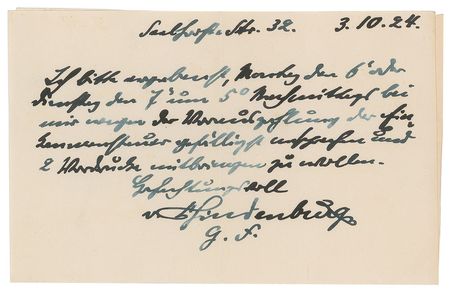 Seelhorststr. 32. 3.10.24.
Ich bitte ergebenst, Montag den 6' oder
Dienstag den 7' um 5° Nachmittags bei
mir wegen der Vorauszahlung der Ein
kommensteuer gefälligst vorsprechen und
2 Vordrucke mitbringen zu wollen.
Hochachtungsvoll
v. Hindenburg
G. F.